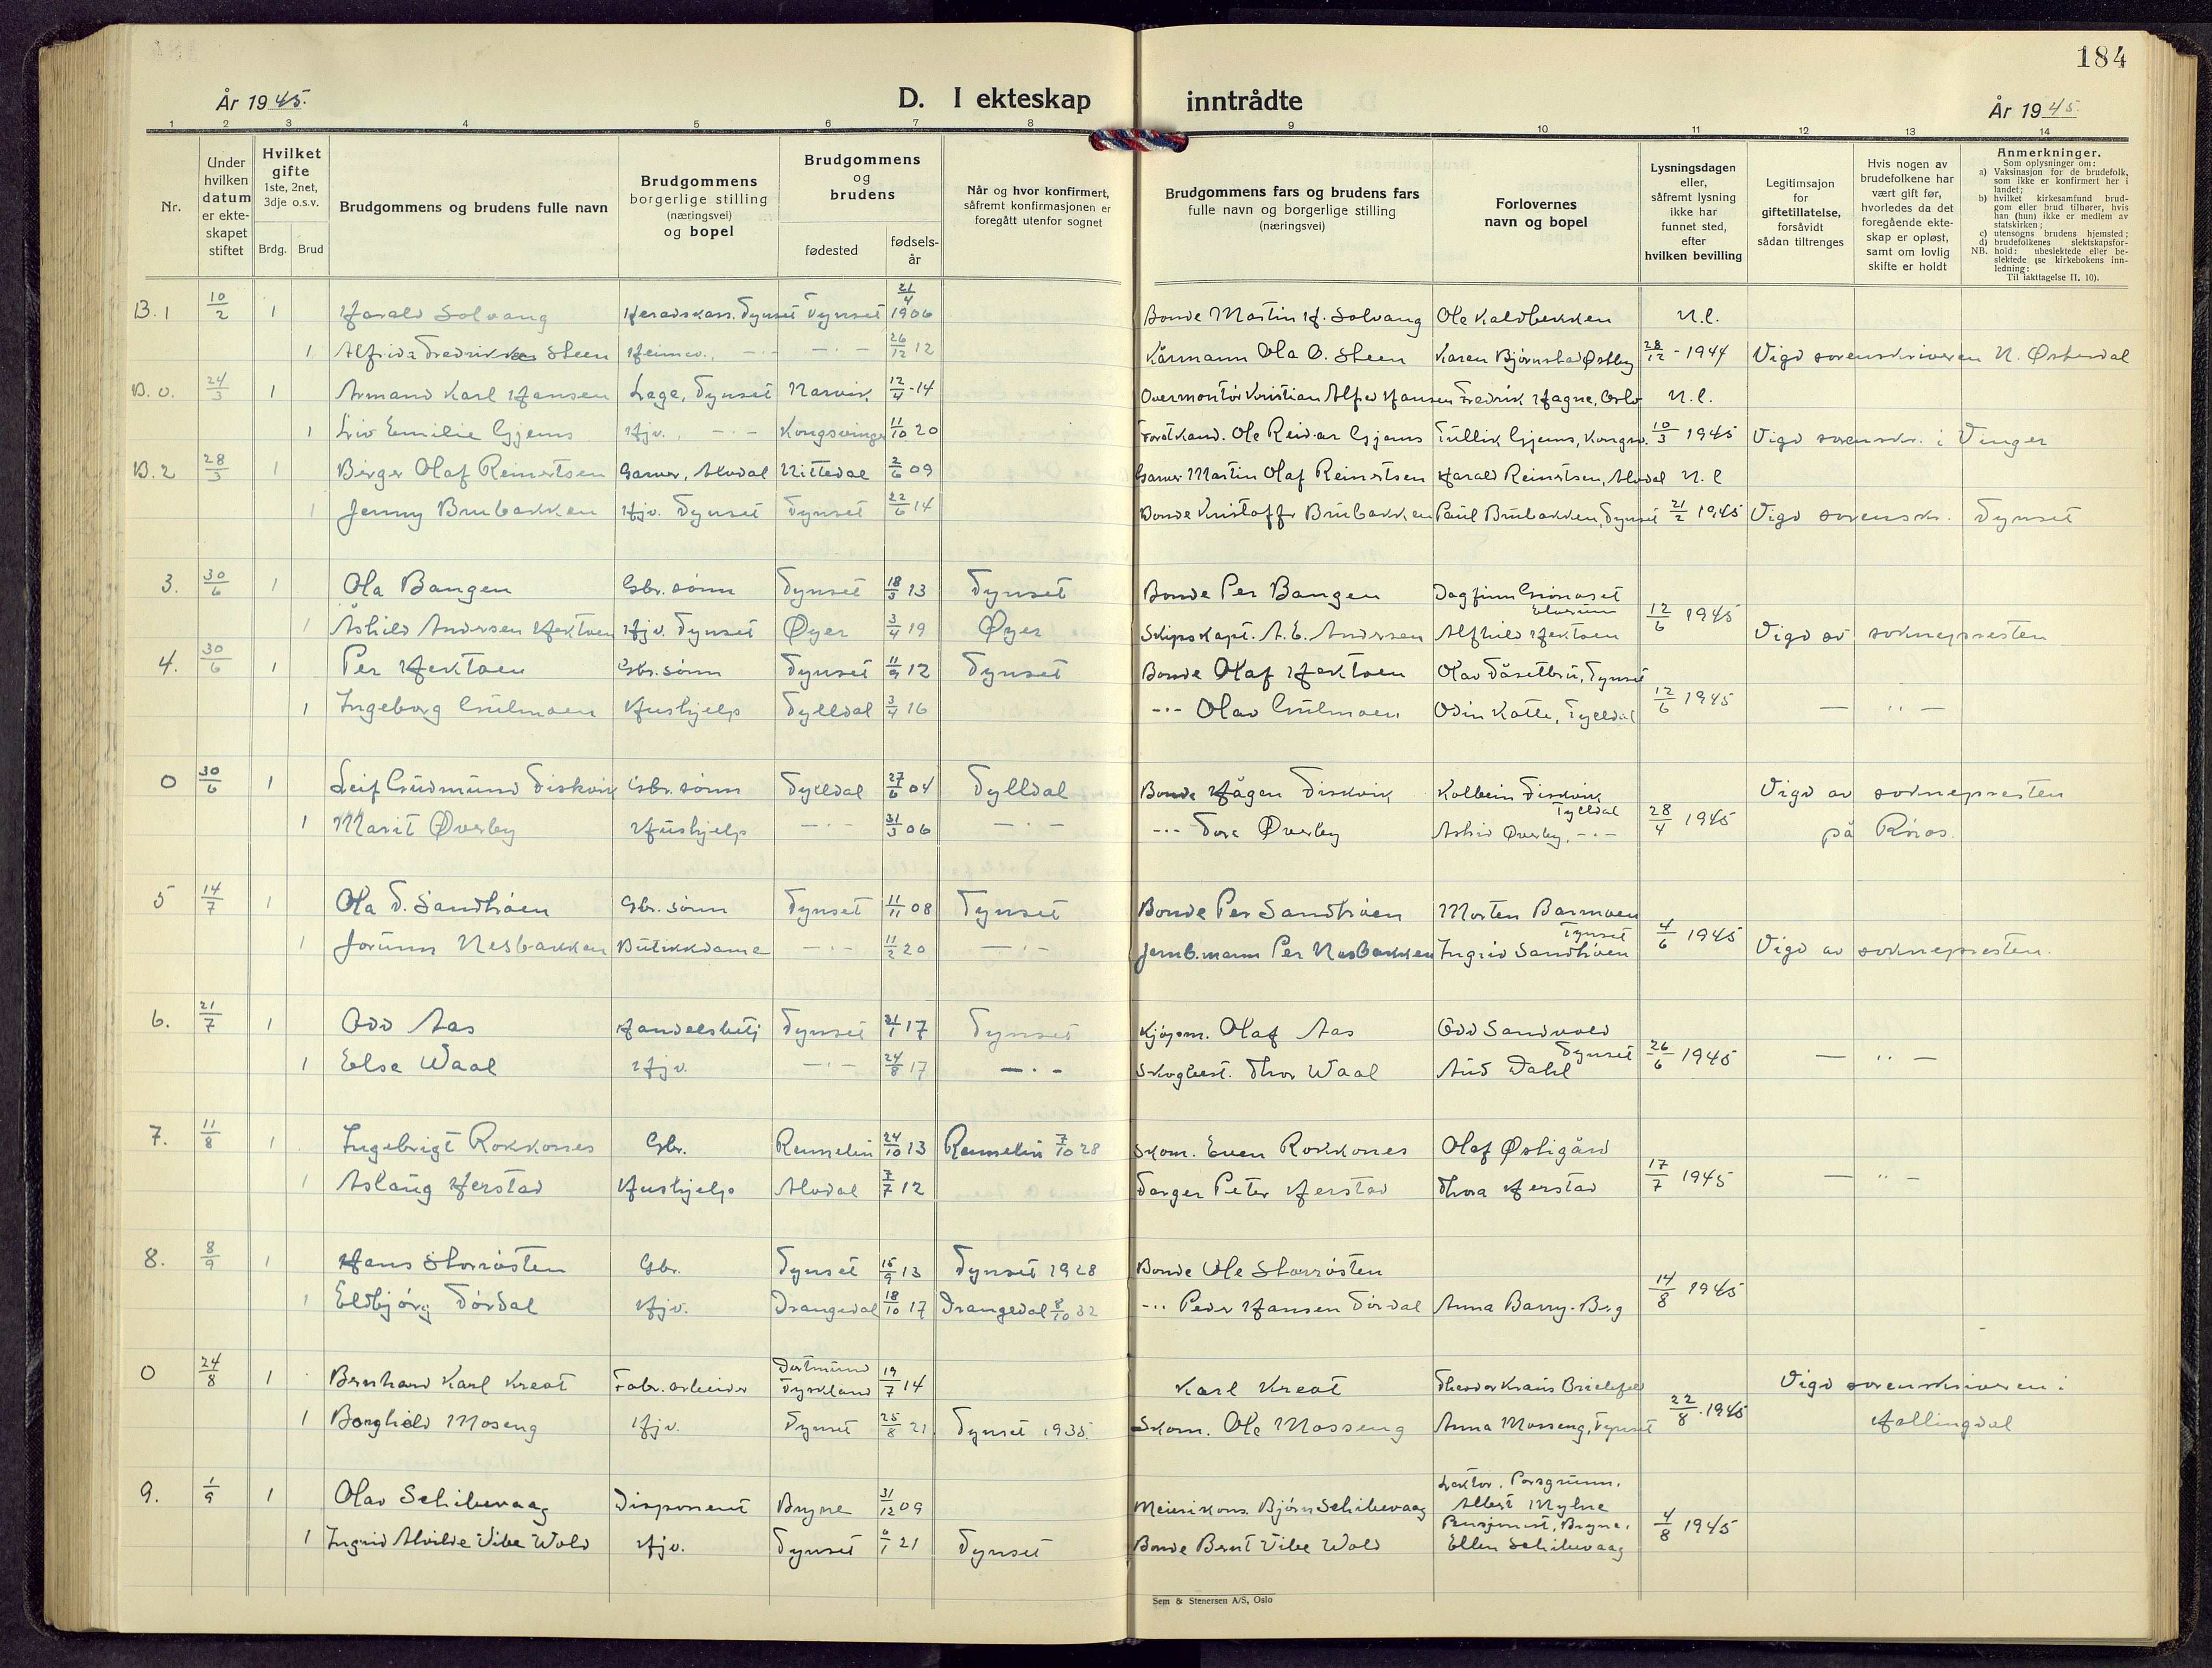 184
År 1945.
D. I ekteskap inntrådte
År 1945.
1 2 3 4 5 6 7 8 9 10 11 12 13 14
Nr.
Under hvilken datum er ekte-skapet stiftet
Hvilket gifte 1ste, 2net, 3dje o.s.v.
Brdg. Brud
Brudgommens og brudens fulle navn
Brudgommens borgerlige stilling (næringsvei) og bopel
Brudgommens og brudens
fødested
fødsels-år
Når og hvor konfirmert, såfremt konfirmasjonen er foregått utenfor sognet
Brudgommens fars og brudens fars fulle navn og borgerlige stilling (næringsvei)
Forlovernes navn og bopel
Lysningsdagen eller, såfremt lysning ikke har funnet sted, efter hvilken bevilling
Legitimsajon for giftetillatelse, forsåvidt sådan tiltrenges
Hvis nogen av brudefolkene har vært gift før, hvorledes da det foregående ekte-skap er opløst, samt om lovlig skifte er holdt
Anmerkninger.
Som oplysninger om:
a) Vaksinasjon for de brudefolk, som ikke er konfirmert her i landet;
b) hvilket kirkesamfund brud-gom eller brud tilhører, hvis han (hun) ikke er medlem av statskirken;
c) utensogns brudens hjemsted;
d) brudefolkenes slektskapsfor-hold: ubeslektede eller be-slektede (se kirkebokens inn-ledning:
NB.
Til iakttagelse II, 10).
B. 1 10/2 1 Harald Solvang Heradskass. Tynset Tynset 21/4 1906 Bonde Martin H. Solvang Ole Kaldbekken N.l.
1 Alfrida Fredrikke Steen Heimev. —·— —·— 26/12 12 Kårmann Ola O. Steen Karen Bjørnstad Østby 28/12 - 1944 Vigd sorenskriveren N. Østerdal
B. 0. 24/3 1 Armand Karl Hansen Lege, Tynset Narvik 12/4 -14 Overmontør Kristian Alfred Hansen Fredrik Hagne, Oslo N.l.
1 Liv Emilie Gjems Hjv. —·— Kongsvinger 11/10 20 Forstkand. Ole Reidar Gjems Tullik Gjems, Kongsv. 10/3 1945 Vigd sorenskr. i Vinger
B. 2 28/3 1 Birger Olaf Reinertsen Garver, Alvdal Nittedal 2/6 09 Garver Martin Olaf Reinertsen Harald Reinertsen, Alvdal N.l
1 Jenny Brubakken Hjv. Tynset Tynset 22/6 14 Bonde Kristoffer Brubakken Paul Brubakken, Tynset 21/2 1945 Vigd sorenskr. Tynset
3. 30/6 1 Ola Bangen Gbr. sønn Tynset 18/3 13 Tynset Bonde Per Bangen Dagfinn Grønoset Elverum
1 Åshild Andersen Hektoen Hjv. Tynset Øyer 3/4 19 Øyer Skipskapt. A. E. Andersen Alfhild Hektoen 12/6 1945 Vigd av soknepresten
4. 30/6 1 Per Hektoen Gbr. sønn Tynset 11/9 12 Tynset Bonde Olaf Hektoen Olav Tåsetbru, Tynset
1 Ingeborg Gulmoen Hushjelp Tylldal 3/4 16 —··— Olav Gulmoen Odin Katle, Tylldal 12/6 1945 — ·· —
0 30/6 1 Leif Gudmund Fiskvik Gbr. sønn Tylldal 27/6 04 Tylldal Bonde Hågen Fiskvik Kolbein Fiskvik Tylldal Vigd av soknepresten
1 Marit Øverby Hushjelp —·— 31/3 06 —·— —··— Tore Øverby Astrid Øverby, —·— 28/4 1945 på Røros.
5 14/7 1 Ola T. Sandtrøen Gbr. sønn Tynset 11/11 08 Tynset Bonde Per Sandtrøen Morten Barmoen Tynset
1 Jorunn Nesbakken Butikkdame —·— 11/2 20 —·— Jernb.mann Per Nesbakken Ingrid Sandtrøen 4/6 1945 Vigd av soknepresten.
6. 21/7 1 Odd Aas Handelsbetj Tynset 21/1 17 Tynset Kjøpm. Olaf Aas Odd Sandvold
1 Else Waal Hjv. —·— 24/8 17 —·— Skogbest. Thor Waal Aud Dahl Tynset 26/6 1945 — ·· —
7. 11/8 1 Ingebrigt Rokkones Gbr. Rennebu 24/10 13 7/10 28 Skom. Even Rokkones Olaf Østigård
1 Aslaug Herstad Hushjelp Alvdal 7/7 12 Farger Peter Herstad Thora Herstad 17/7 1945 — ·· —
8. 8/9 1 Hans Storrøsten Gbr. Tynset 15/9 13 Tynset 1928 Bonde Ole Storrøsten
1 Eldbjørg Tørdal Hjv. Drangedal 18/10 17 Drangedal 8/10 32 —··— Peder Hansen Tørdal Anna Barry-Berg 14/8 1945
0 24/8 1 Bernhard Karl Kreot Fabr. arbeider Dortmund Tyskland 19/7 14 Karl Kreot Theodor Kraus Vigd sorenskriveren i
1 Borghild Moseng Hjv. Tynset 25/8 21 Tynset 1935. Skom. Ole Mosseng Anna Mosseng, Tynset 22/8 . 1945 Hallingdal
9. 1/9 1 Olav Schibevaag Disponent Bryne 31/12 09 Meierikons. Bjørn Schibevaag Lektor. Porsgrunn. Albert Myhre
1 Ingrid Alvilde Vibe Wold Hjv. Tynset 6/1 21 Tynset Bonde Bernt Vibe Wold Bryne. Ellen Schibevaag 4/8 1945
Sem & Stenersen A/S, Oslo